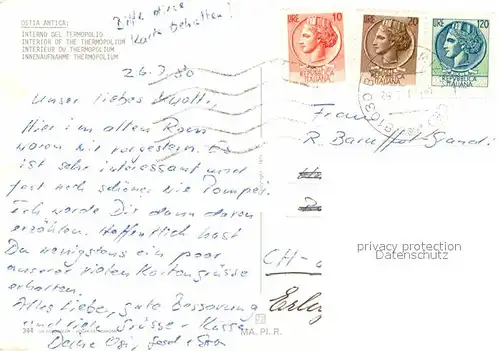 OSTIA ANTICA:
INTERNO DEL TERMOPOLIO
INTERIOR OF THE THERMOPOLIUM
INTERIEUR DU THERMOPOLIUM
INNENAUFNAHME THERMOPOLIUM
Bitte diese
Karte behalten!
26.7.80
Unser liebes
Hier im alten Rom
waren wir vorgestern. Es
ist sehr interessant und
fast noch schöner wie Pompei.
Ich werde Dir dann davon
erzählen. Hoffentlich hast
Du wenigstens ein paar
unserer vielen Kartengrüsse
erhalten.
Alles Liebe, gute Besserung
und viele Grüsse + Küsse
Deine
LIRE 10
LIRE 20
LIRE 120
REPUBBLICA
ITALIANA
REPUBBLICA
ITALIANA
REPUBBLICA
ITALIANA
Frau
R.
privacy protection
VEIKKOS.COM
CH-
344
MA. PI. R.